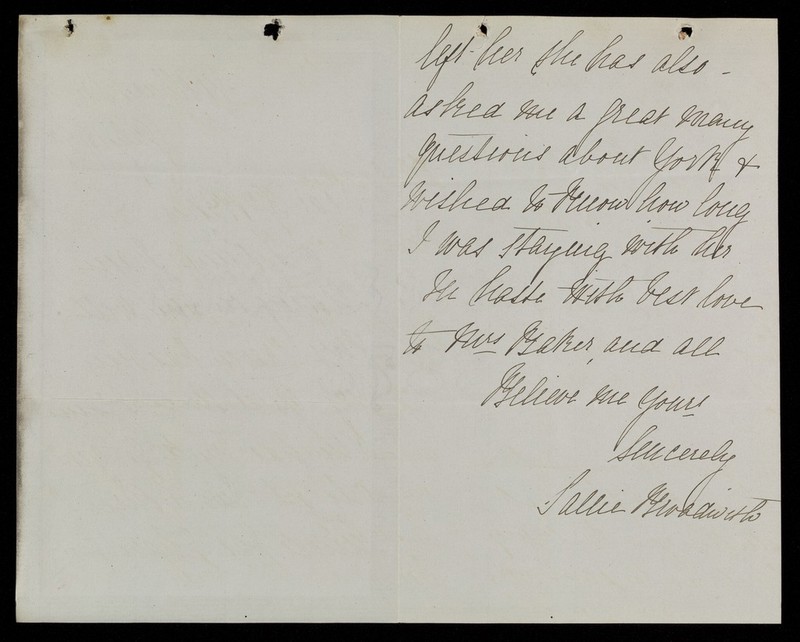 left her she has also -
asked me a great many
questions about York &
wished to know how long
I was staying with her
In haste with best love
to Mrs Baker, and all
Believe me yours
Sincerely
Sallie